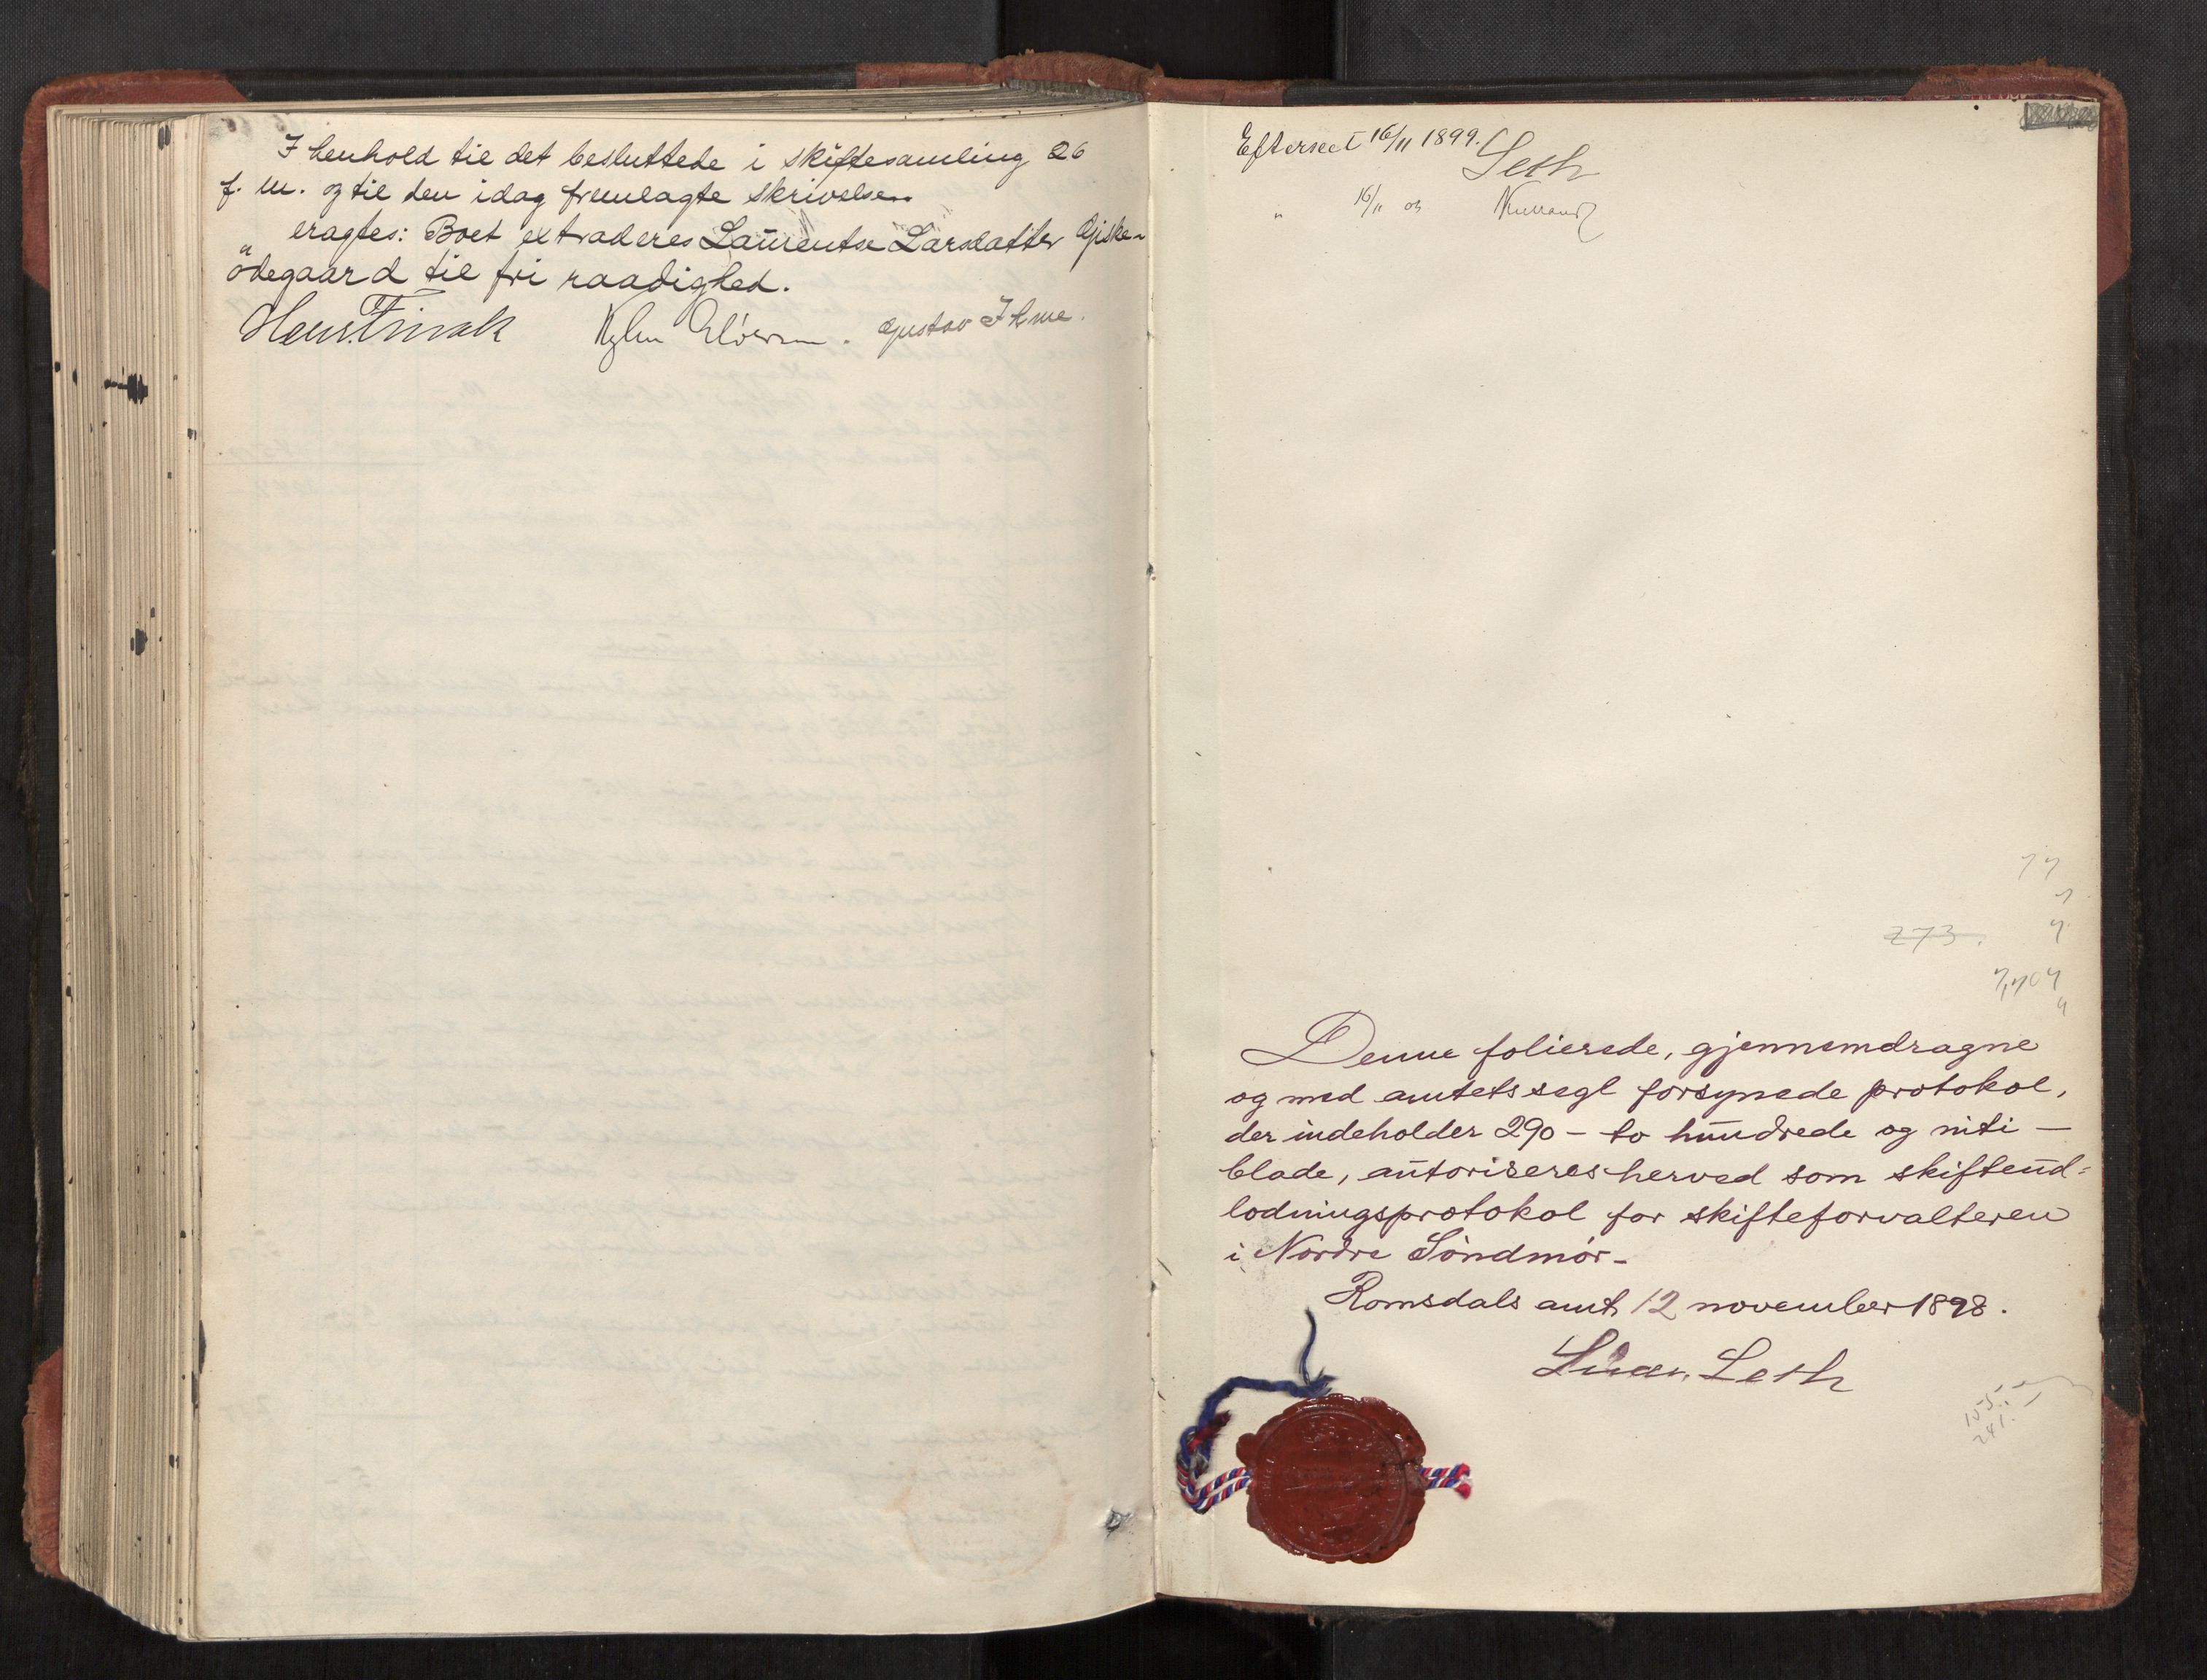 I henhold til det besluttede i skiftesamling 26
f. m. og til den idag fremlagte skrivelse..
eragtes: Boet extraderes Laurentse Larsdatter Gjiske-
ødegaard til fri raadighed.
Gustav Ihme.
Efterseet 16/11 1899.
Leth
" 16/11 01
273.
Denne folierede, gjennemdragne
og med amtets segl forsynede protokol,
der indeholder 290 - to hundrede og niti -
blade, autoriseres herved som skifteud-
lodningsprotokol for skifteforvalteren
i Nordre Söndmör.
Romsdals amt 12 november 1898.
Leth
155
241